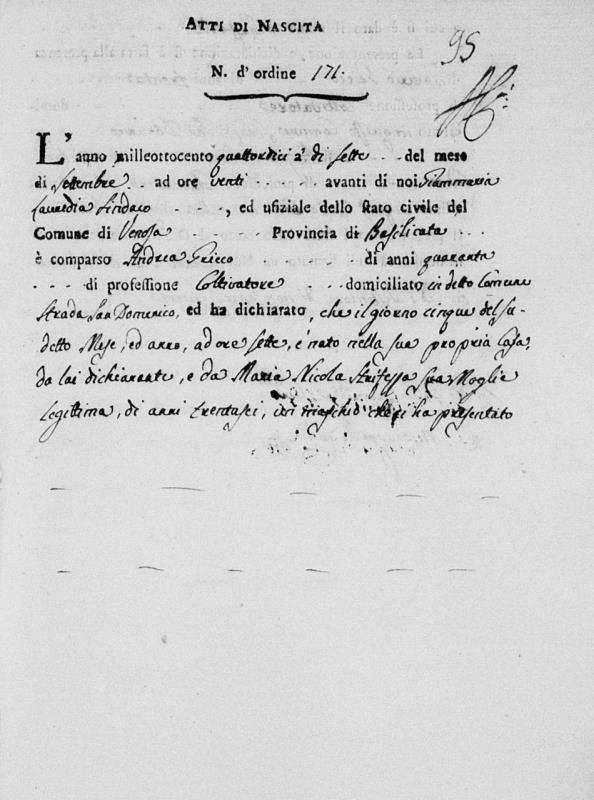 ATTI DI NASCITA
95
N. d'ordine 171.
L'anno milleottocento quattordici a' di sette - - del mese
di Settembre - - ad ore venti - - - - avanti di noi Giammaria
Lauridia Sindaco - - - -, ed ufiziale dello stato civile del
Comune di Venosa - - - - - Provincia di Basilicata - - -
è comparso Andrea Grieco - - - - di anni quaranta
- - - - di professione Coltivatore - - - domiciliato in detto Comune
Strada San Domenico, ed ha dichiarato, che il giorno cinque del su-
detto Mese, ed anno, ad ore sette, è nato nella sua propria Casa,
da lui dichiarante, e da Maria Nicola Strifezza sua Moglie
legittima, di anni trentasei, un maschio che ci ha presentato